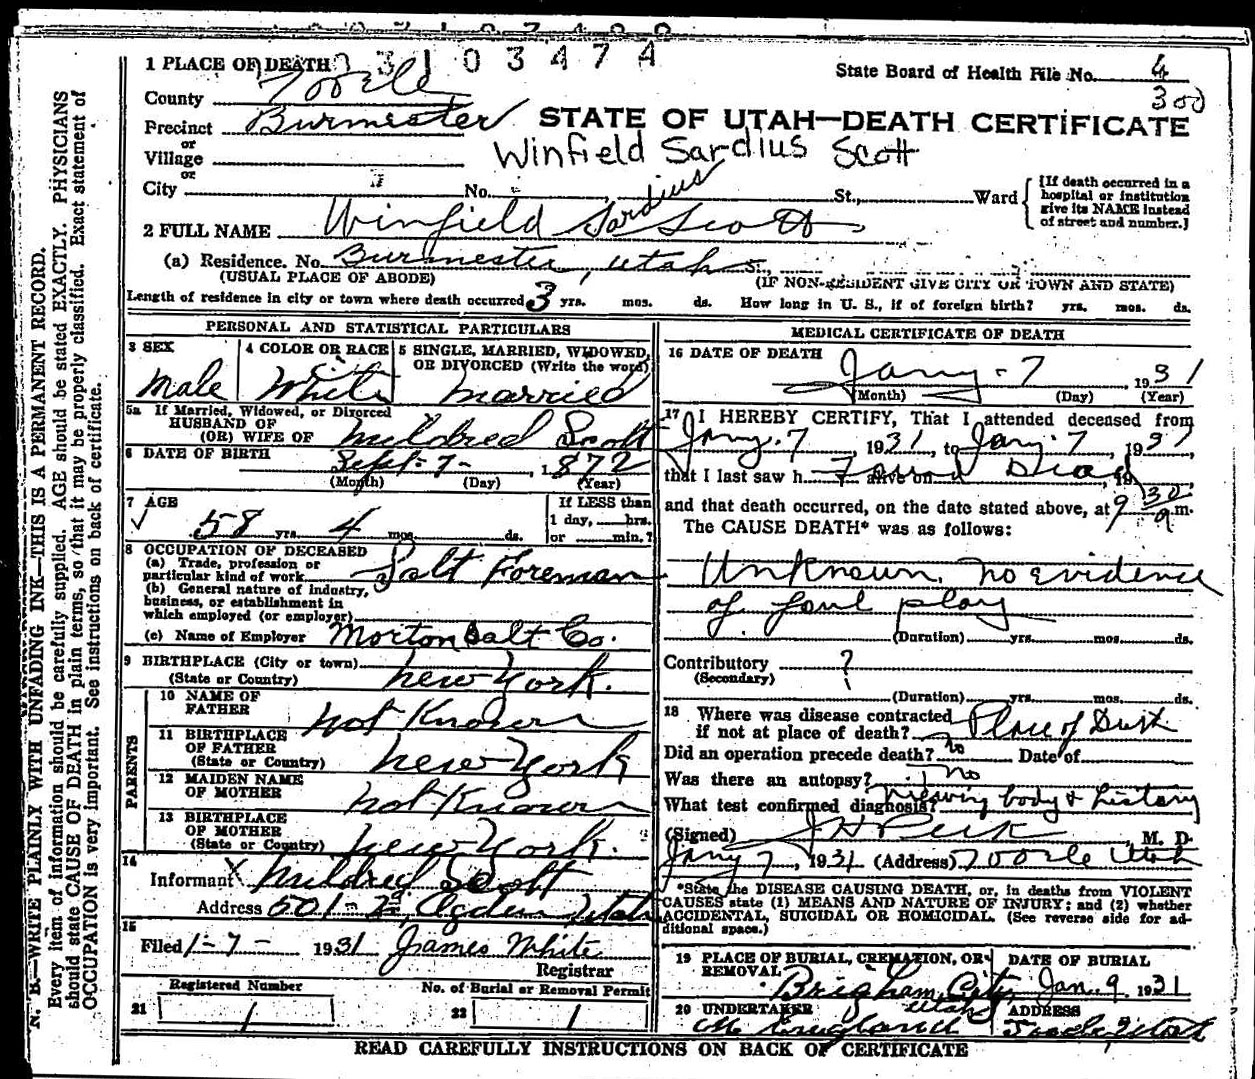 3 1 0 3 4 7 4
1 PLACE OF DEATH
State Board of Health File No. 4
300
County Tooele
Precinct Burmester
STATE OF UTAH—DEATH CERTIFICATE
or
Village
Winfield Sardius Scott
or
City No. St., Ward
[If death occurred in a hospital or institution give its NAME instead of street and number.]
2 FULL NAME Winfield Sardius Scott
(a) Residence. No. Burmester, Utah St.,
(USUAL PLACE OF ABODE) (IF NON-RESIDENT GIVE CITY OR TOWN AND STATE)
Length of residence in city or town where death occurred 3 yrs. mos. ds. How long in U. S., if of foreign birth? yrs. mos. ds.
PERSONAL AND STATISTICAL PARTICULARS
3 SEX
Male
4 COLOR OR RACE
White
5 SINGLE, MARRIED, WIDOWED,
OR DIVORCED (Write the word)
Married
5a If Married, Widowed, or Divorced
HUSBAND OF
(OR) WIFE OF Mildred Scott
6 DATE OF BIRTH Sept- 7- , 1872
(Month) (Day) (Year)
7 AGE
58 yrs. 4 mos. ds.
If LESS than
1 day, hrs.
or min.?
8 OCCUPATION OF DECEASED
(a) Trade, profession or
particular kind of work Salt Foreman
(b) General nature of industry,
business, or establishment in
which employed (or employer)
(c) Name of Employer Morton Salt Co.
9 BIRTHPLACE (City or town)
(State or Country) New York.
PARENTS
10 NAME OF
FATHER not Known
11 BIRTHPLACE
OF FATHER
(State or Country) New York
12 MAIDEN NAME
OF MOTHER not Known
13 BIRTHPLACE
OF MOTHER
(State or Country) New York.
14
Informant X Mildred Scott
Address 501- 2nd, Ogden, Utah
15
Filed 1-7- 1931 James White
Registrar
Registered Number No. of Burial or Removal Permit
21 1 22 1
MEDICAL CERTIFICATE OF DEATH
16 DATE OF DEATH
Jany. 7 , 1931
(Month) (Day) (Year)
17 I HEREBY CERTIFY, That I attended deceased from
Jany. 7 , 1931, to Jany. 7 , 1931,
that I last saw h alive on Found Dead, 19
and that death occurred, on the date stated above, at 9 30 a m.
The CAUSE DEATH* was as follows:
Unknown, no evidence
of foul play
(Duration) yrs. mos. ds.
Contributory ?
(Secondary)
(Duration) yrs. mos. ds.
18 Where was disease contracted
if not at place of death? Place of
Did an operation precede death? no Date of
Was there an autopsy? no
What test confirmed diagnosis? Viewing body & history
(Signed) J H Peck M. D.
Jany 7, 1931 (Address) Tooele Utah
*State the DISEASE CAUSING DEATH, or, in deaths from VIOLENT
CAUSES state (1) MEANS AND NATURE OF INJURY; and (2) whether
ACCIDENTAL, SUICIDAL OR HOMICIDAL. (See reverse side for ad-
ditional space.)
19 PLACE OF BURIAL, CREMATION, OR
REMOVAL
Brigham City Utah
DATE OF BURIAL
Jan. 9, 1931
20 UNDERTAKER
M England
ADDRESS
Tooele, Utah
READ CAREFULLY INSTRUCTIONS ON BACK OF CERTIFICATE
N. B.—WRITE PLAINLY WITH UNFADING INK—THIS IS A PERMANENT RECORD.
Every item of information should be carefully supplied. AGE should be stated EXACTLY. PHYSICIANS
should state CAUSE OF DEATH in plain terms, so that it may be properly classified. Exact statement of
OCCUPATION is very important. See instructions on back of certificate.